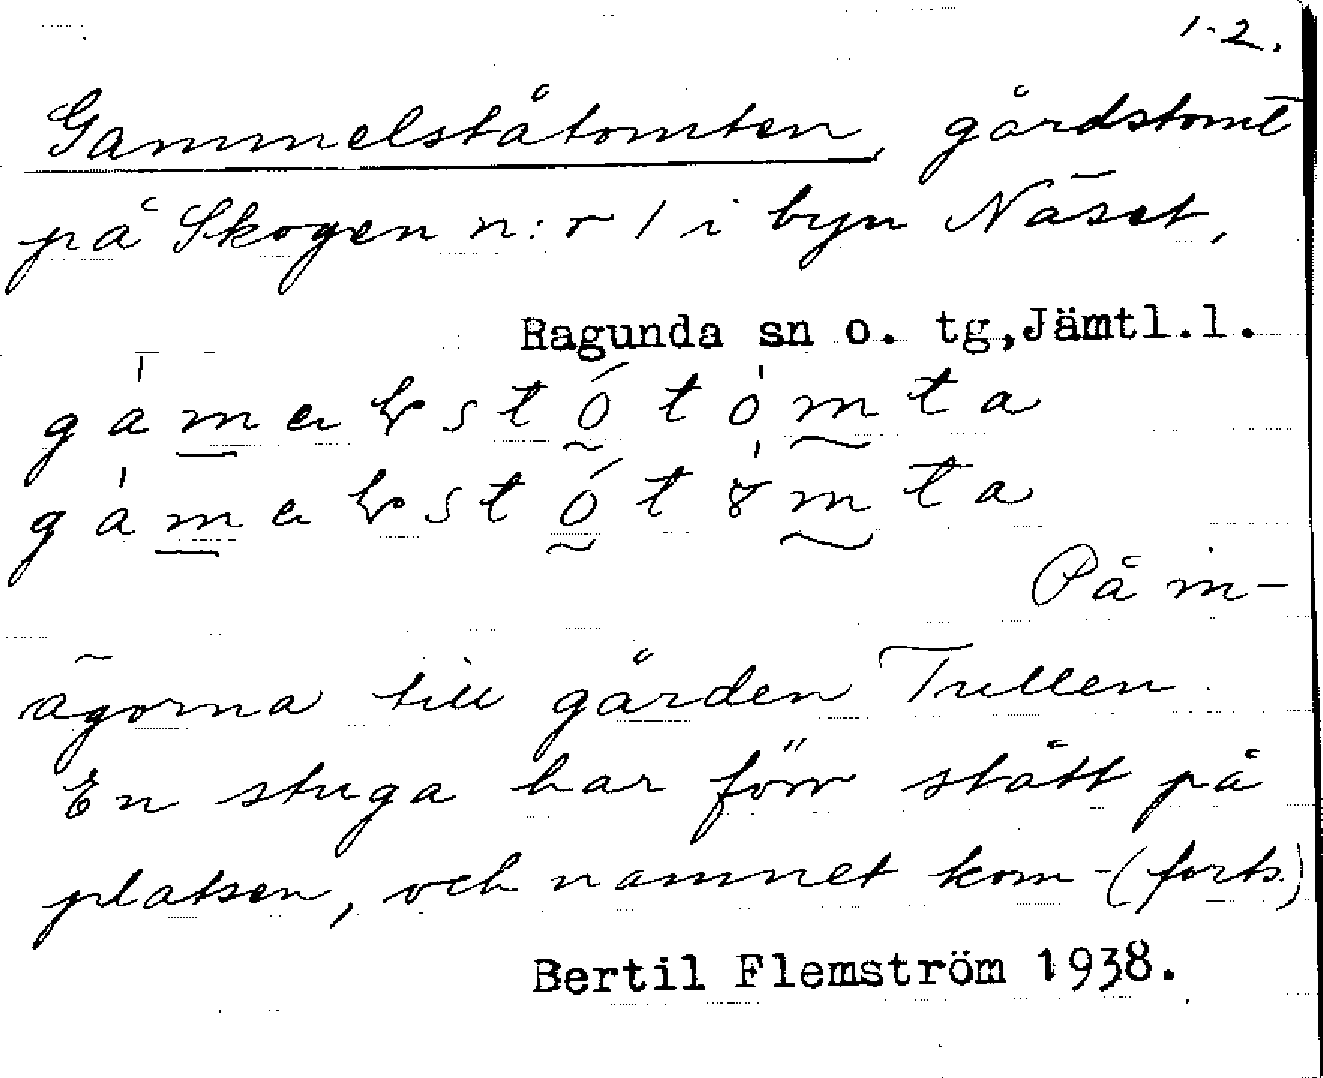 1-2.
Gammelståtomten, gårdstomt
på Skogen n:r 1 i byn Näset,
Ragunda sn o. tg,Jämtl.l.
På in-
ägorna till gården Tullen.
En stuga har förr stått på
platsen, och namnet kom-(forts.)
Bertil Flemström 1938.